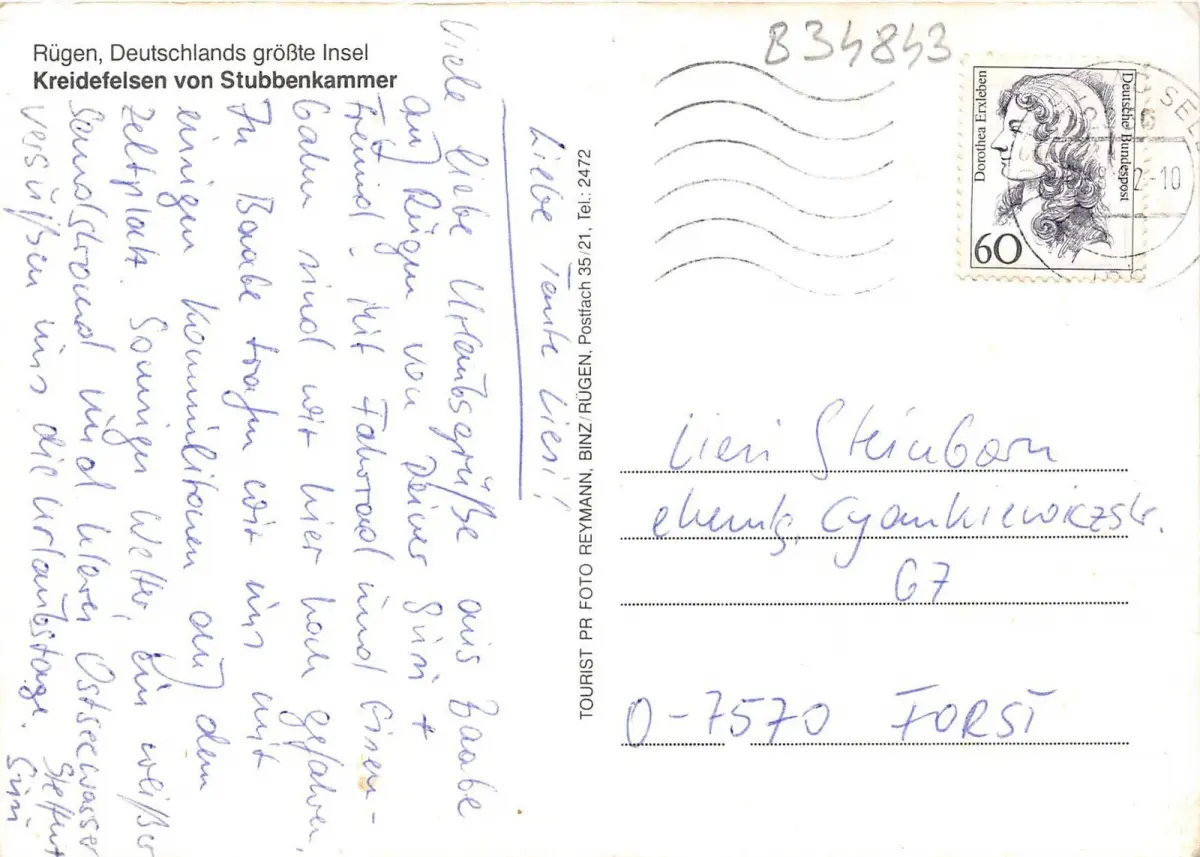 Rügen, Deutschlands größte Insel
Kreidefelsen von Stubbenkammer
Liebe Tante Liesi!
Viele liebe Urlaubsgrüße aus Baabe
auf Rügen von Deiner Susi +
Freund. Mit Fahrrad und Eisen-
bahn sind wir hier hoch gefahren.
In Baabe trafen wir uns mit
einigen Kommilitonen auf dem
Zeltplatz. Sonniges Wetter, ein weißer
Sandstrand und klares Ostseewasser
versüßen uns die Urlaubstage.
Steffen
Susi
TOURIST PR FOTO REYMANN, BINZ/RÜGEN, Postfach 35/21, Tel.: 2472
B34843
Dorothea Erxleben
Deutsche Bundespost
60
SEL
2-10
Liesi Steinborn
ehemlg. Cyankiewiczstr.
67
O-7570 FORST